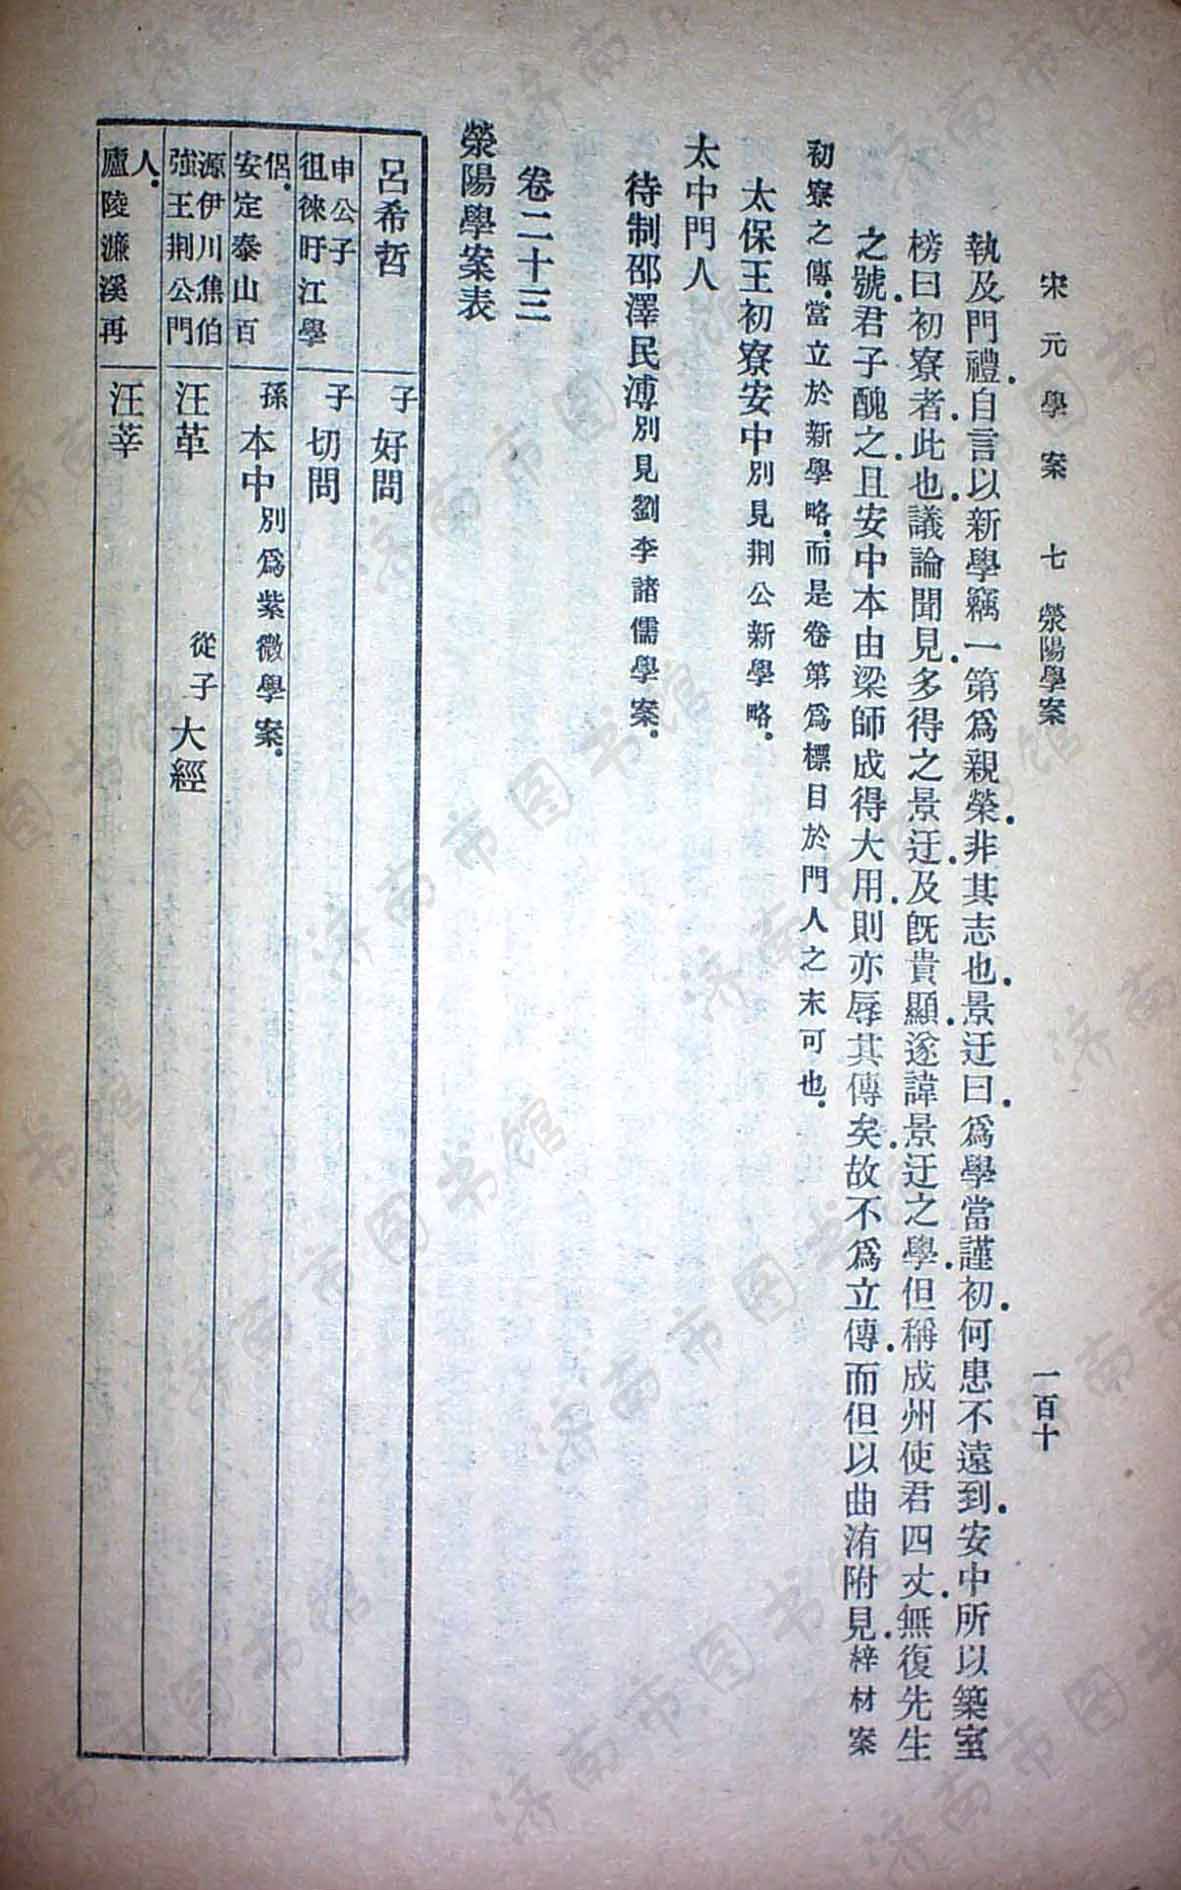 宋元學案 七 滎陽學案 一百十
執及門禮.自言以新學竊一第爲親榮.非其志也.景迂曰.爲學當謹初.何患不遠到.安中所以築室
榜曰初寮者.此也.議論聞見.多得之景迂.及既貴顯.遂諱景迂之學.但稱成州使君四丈.無復先生
之號.君子醜之.且安中本由梁師成得大用.則亦辱其傳矣.故不爲立傳.而但以曲洧附見.梓材案
初寮之傳.當立於新學略.而是卷第爲標目於門人之末可也.
太保王初寮安中別見荆公新學略.
太中門人
待制邵澤民溥別見劉李諸儒學案.
卷二十三
滎陽學案表
呂希哲
子 好問
申公子
徂徠盱江學
子 切問
侶.
安定泰山百
孫 本中 別爲紫微學案.
源伊川焦伯
強王荆公門
汪革
從子 大經
人.
廬陵濂溪再
汪莘
济南市图书馆